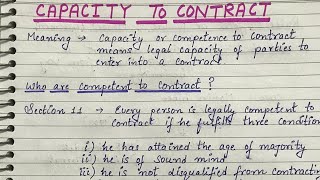 CAPACITY TO CONTRACT
Meaning → Capacity or competence to contract
means legal capacity of parties to
enter into a contract
Who are competent to contract ?
Section 11 → Every person is legally competent to
contract if he fulfills three condition
i) he has attained the age of majority
ii) he is of sound mind
iii) he is not disqualified from contractin